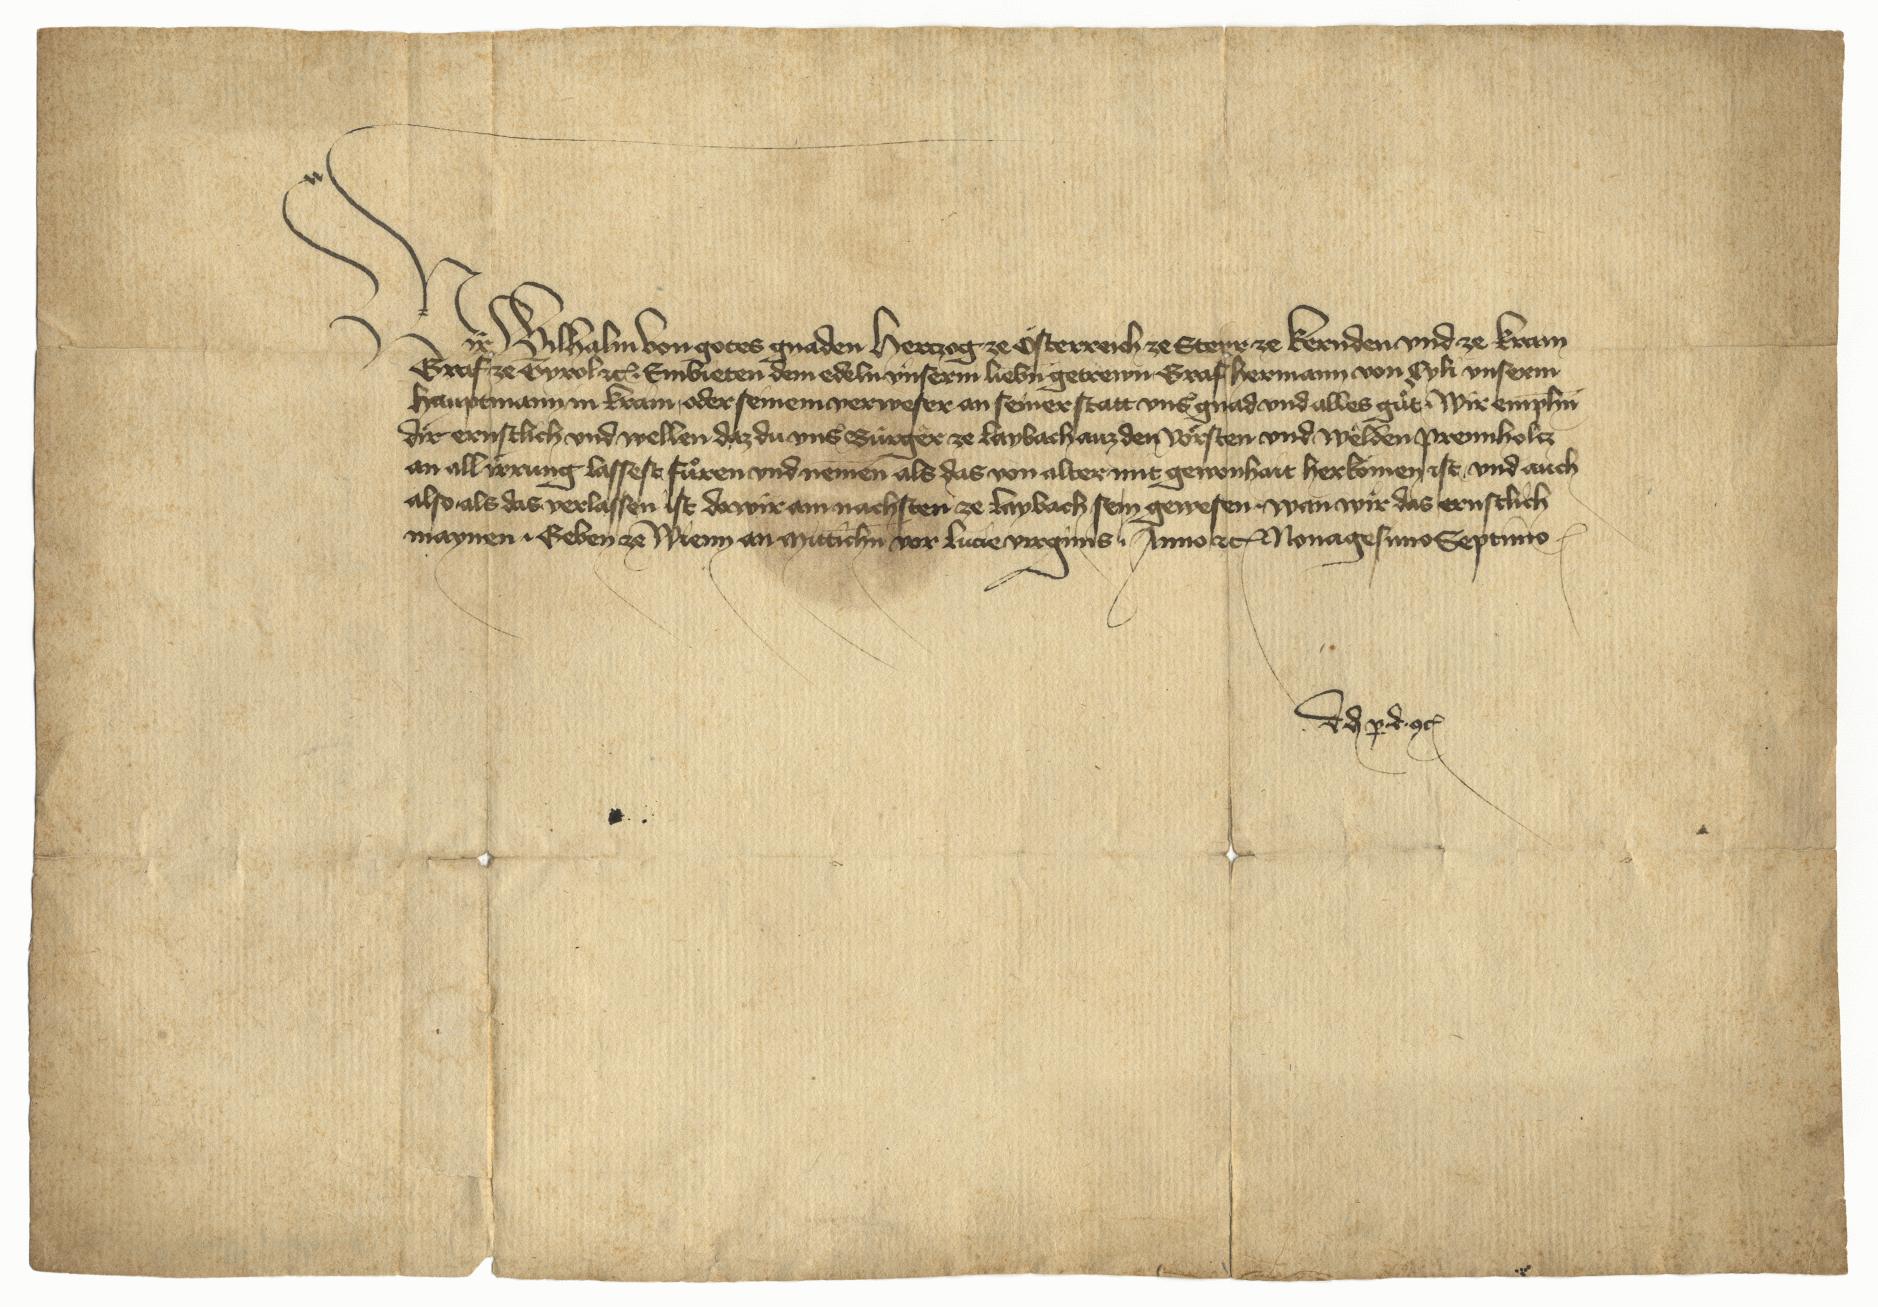 Wir Wilhalm von gotes gnaden Herczog ze Österreich ze Steyr ze kernden vnd ze krain
Graf ze Tyrol etc. Embieten dem edeln vnserm liebn getrewn Graf hermann von Cyli vnserm
hauptmann in krain oder seinem verweser an seiner statt vnser gnad vnd alles gůt. Wir emphln
dir ernstlich vnd wellen daz du vnser Burger ze Laybach auz den vörsten vnd welden prennholcz
an all irrung lassest fůren vnd nemen als das von alter mit gewonhait herkomen ist vnd auch
also als das verlassen ist do wir am nachsten ze Laybach sein gewesen. wan wir das ernstlich
maynen. Geben ze Wienn an Mittichn vor Lucie virginis. Anno etc. Nonagesimo Septimo